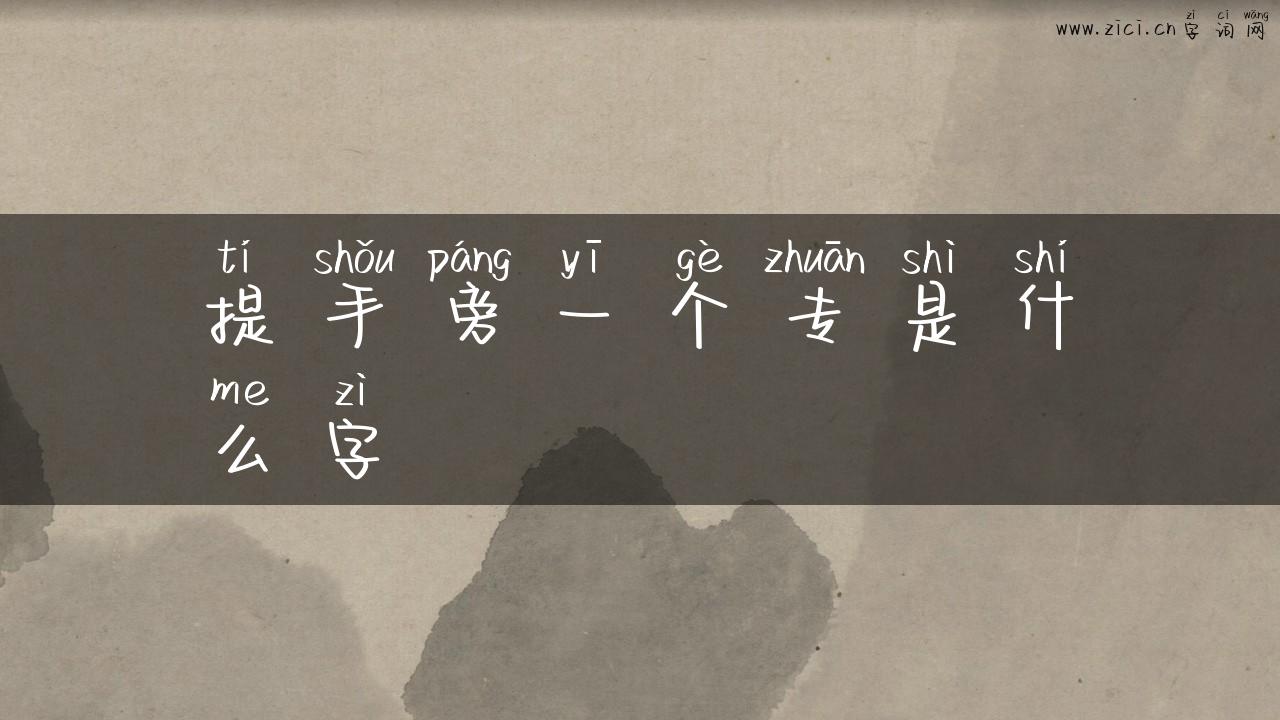 www.zici.cn zì cí wǎng
字词网
tí shǒu páng yī gè zhuān shì shí
提手旁一个专是什
me zì
么字